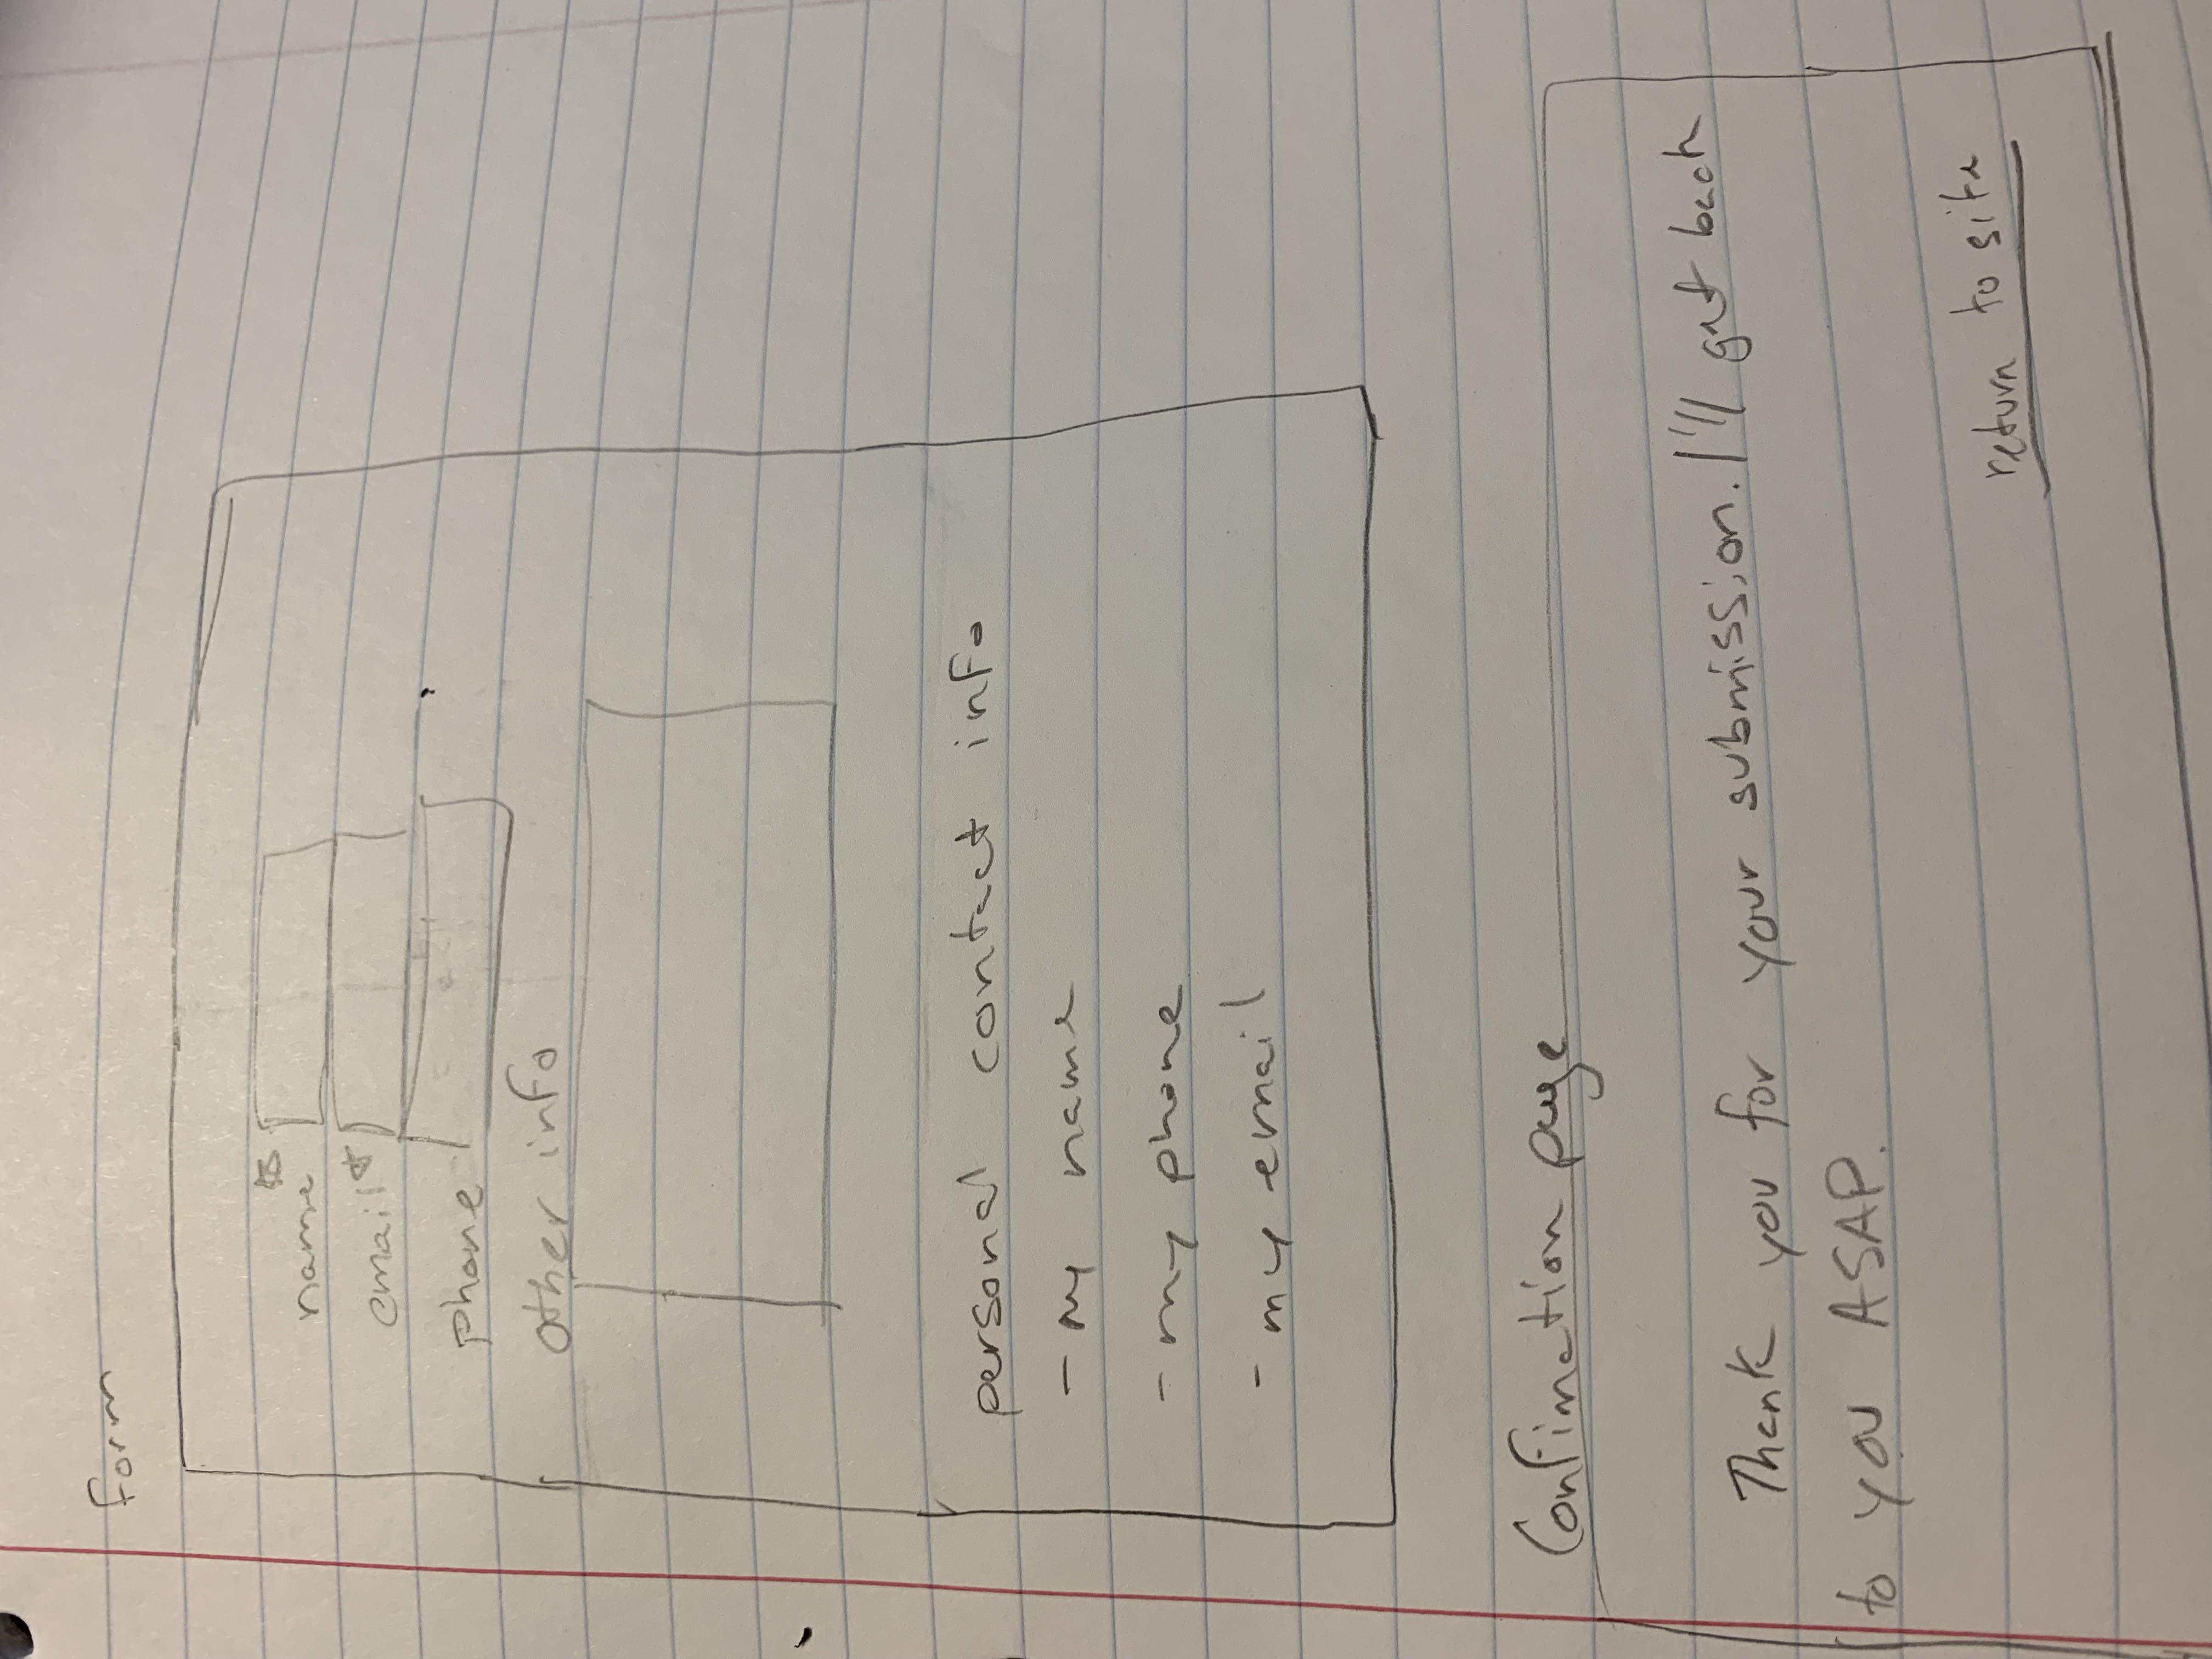 form
name *
email *
phone
other info
personal contact info
- my name
- my phone
- my email
Confimation page
Thank you for your submission. I'll get back
to you ASAP.
return to site